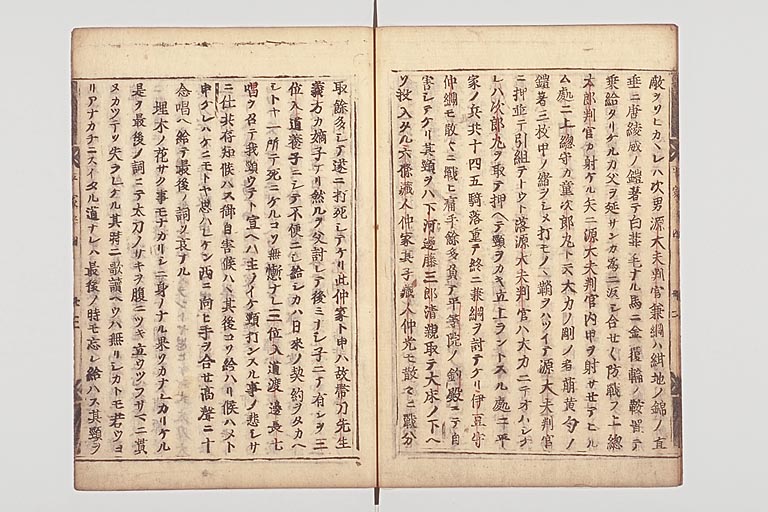 敵ヲソヒカヘレハ次男源大夫判官兼綱ハ紺地ノ錦ノ直
垂ニ唐綾威ノ鎧著テ白葦毛ナル馬ニ金覆輪ノ鞍置テ
乗給タリケルカ父ヲ延サンカ為ニ返シ合セ〱防戦フ上総
太郎判官カ射ケル矢ニ源大夫判官内甲ヲ射サセテヒル
ム処ニ上総守カ童次郎丸ト云大力ノ剛ノ者萌黄匂ノ
鎧著三枚甲ノ緒ヲシメ打モノヽ鞘ヲハツイテ源大夫判官
ニ押並テ引組テトウト落源大夫判官ハ大力ニテオハシケ
レハ次郎丸ヲ取テ押ヘテ頸ヲカキ立上ラントスル処ニ平
家ノ兵共十四五騎落重テ終ニ兼綱ヲ討テケリ伊豆守
仲綱モ散々ニ戦ヒ痛手餘多負テ平等院ノ釣殿ニテ自
害シテケリ其頸ヲハ下河邊藤三郎清親取テ大床ノ下ヘ
ソ投入タル六條蔵人仲家其子蔵人仲光モ散々ニ戦分
取餘多シテ遂ニ打死シテケリ此仲家ト申ハ故帯刀先生
義方カ嫡子ケリ然ルヲ父討レテ後ミナシ子ニテ有シヲ三
位入道養子ニシテ不便ニシ給シカハ日来ノ契約ヲタカヘ
シトヤ一所テ死ニケルコソ無慙ナレ三位入道渡邊長七
唱ヲ召テ我頸ウテト宣ヘハ主ノイケ頸打ンスル事ノ悲シサ
ニ仕共存知候ハス御自害候ハヽ其後コソ給ハリ候ハメト
申ケレハケニモトヤ思ハレケン西ニ向ヒ手ヲ合セ高聲ニ十
念唱ヘ給テ最後ノ詞ソ哀ナル
埋木ノ花サク事モナカリシニ身ノナル果ソカナシカリケル
是ヲ最後ノ詞ニテ太刀ノサキヲ腹ニツキ立ウツフサマニ貫
ヌカツテソ失ラレケル其時ニ歌讀ヘウハ無リシカトモ若ウヨ
リアナカチニスイタル道ナレハ最後ノ時モ忘レ給ハス其頸ヲ